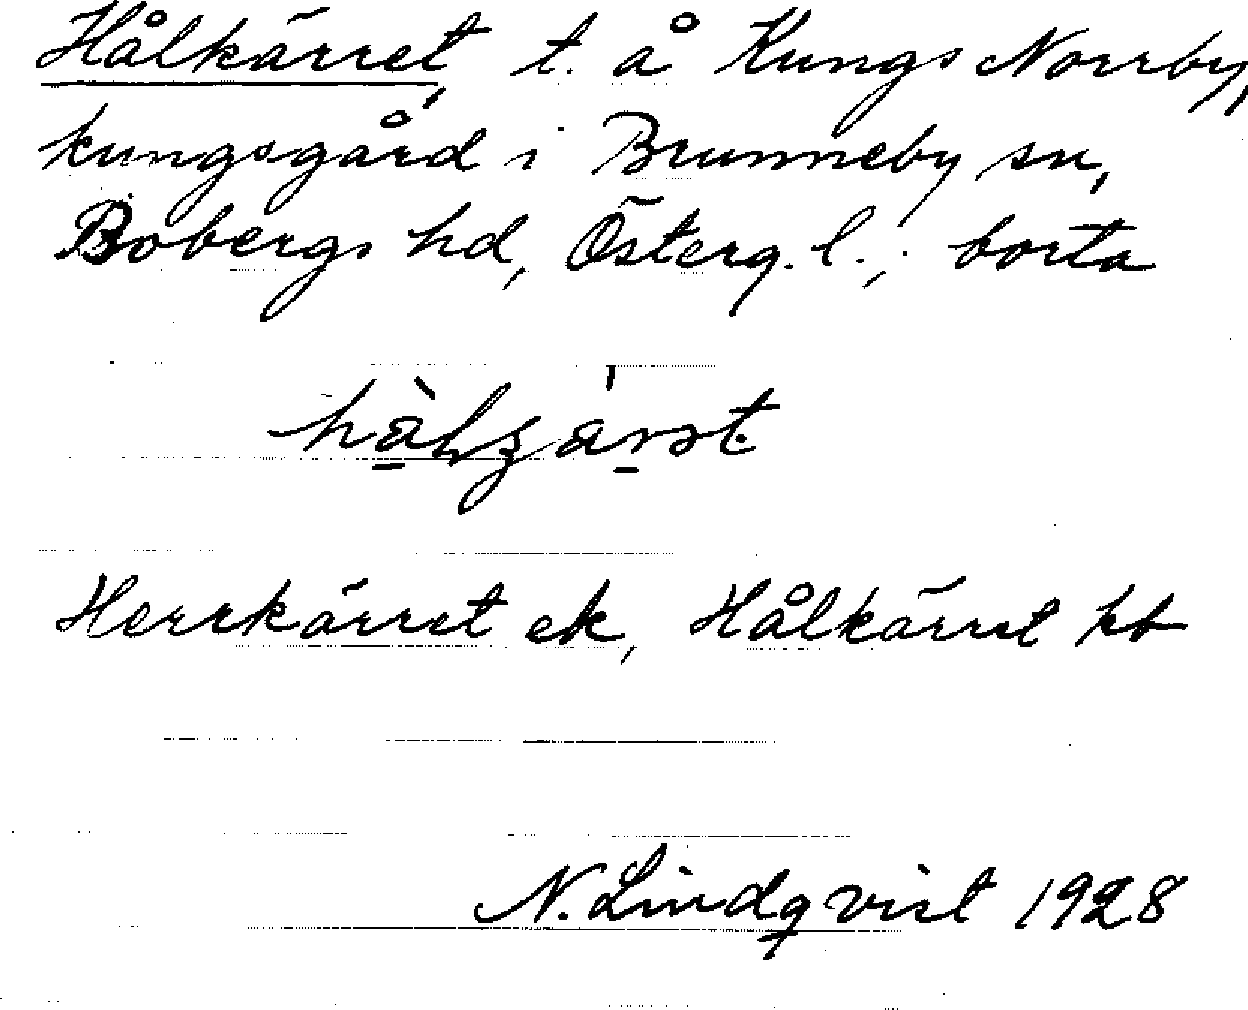 Hålkärret, t. å Kungs Norrby,
kungsgård i Brunneby sn,
Bobergs hd, Österg. l.; borta
Herrkärret ek, Hålkärret hb
N. Lindqvist 1928